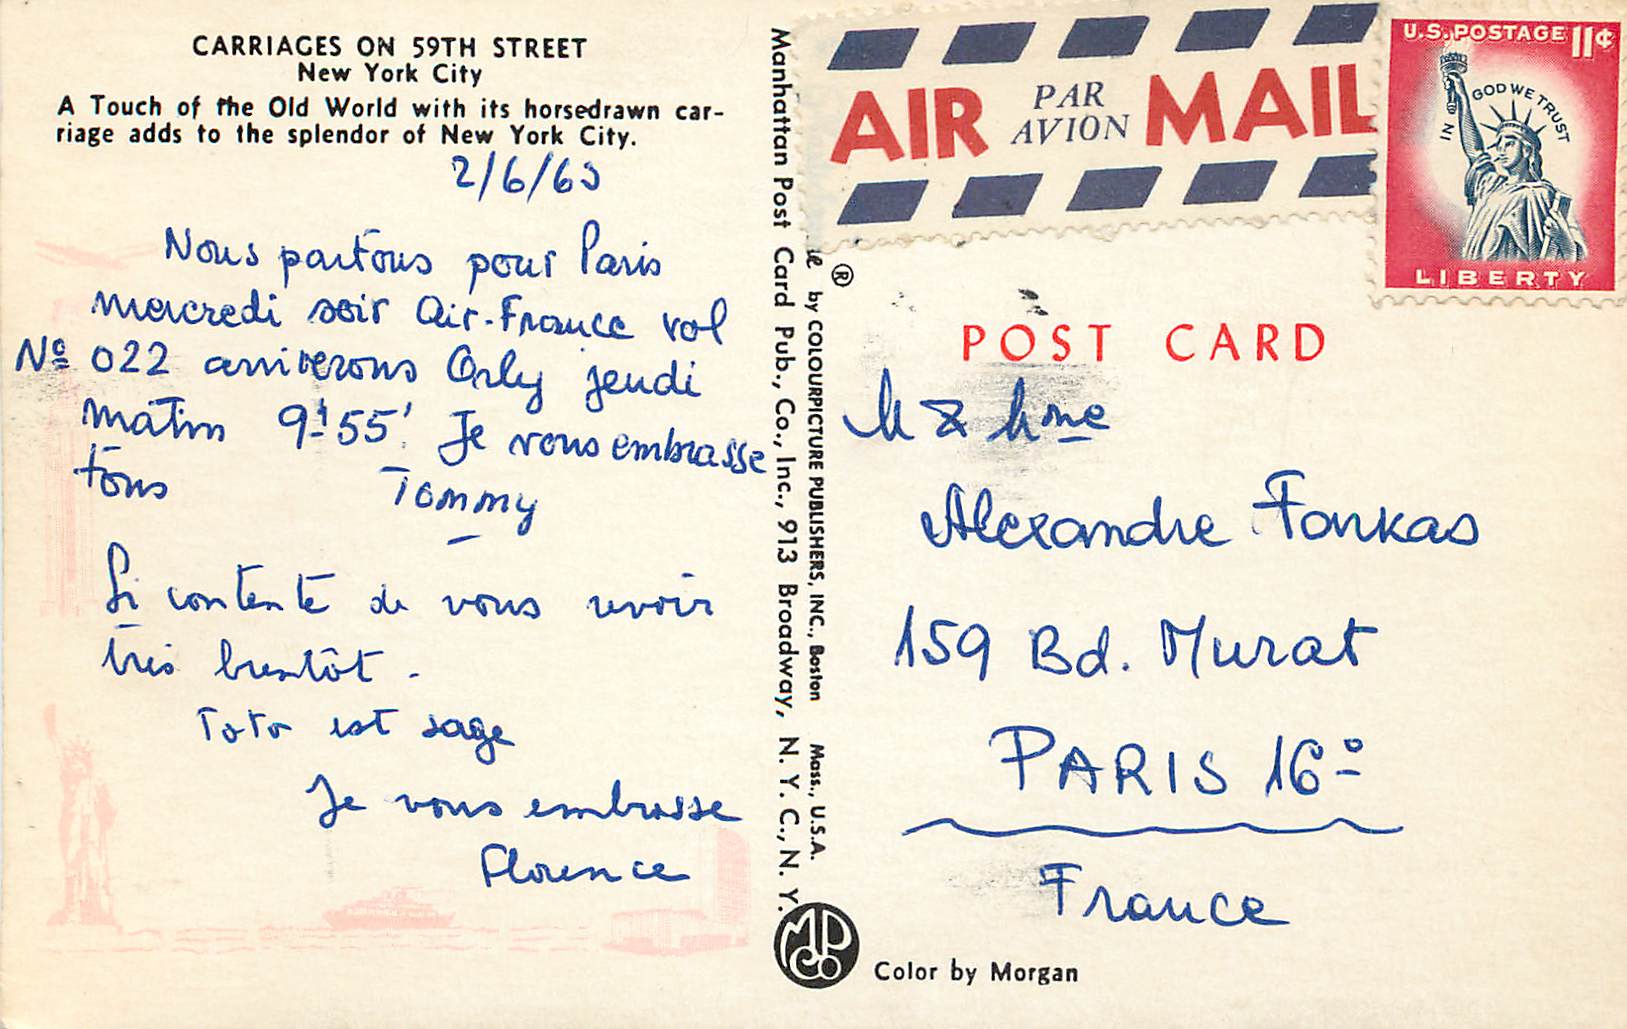 CARRIAGES ON 59TH STREET
New York City
A Touch of the Old World with its horsedrawn car-
riage adds to the splendor of New York City.
2/6/63
Nous partons pour Paris
mercredi soir Air-France vol
Nº 022 arriverons Orly jeudi
matin 9h55' Je vous embrasse
tous Tommy
Si contente de vous revoir
très bientôt.
Toto est sage
Je vous embrasse
Florence
Manhattan Post Card Pub., Co., Inc., 913 Broadway, N. Y. C., N. Y.
by COLOURPICTURE PUBLISHERS, INC., Boston Mass., U.S.A.
®
AIR PAR AVION MAIL
U.S. POSTAGE 11¢
IN GOD WE TRUST
LIBERTY
POST CARD
M & Mme
Alexandre Farkas
159 Bd. Murat
PARIS 16º
France
Color by Morgan